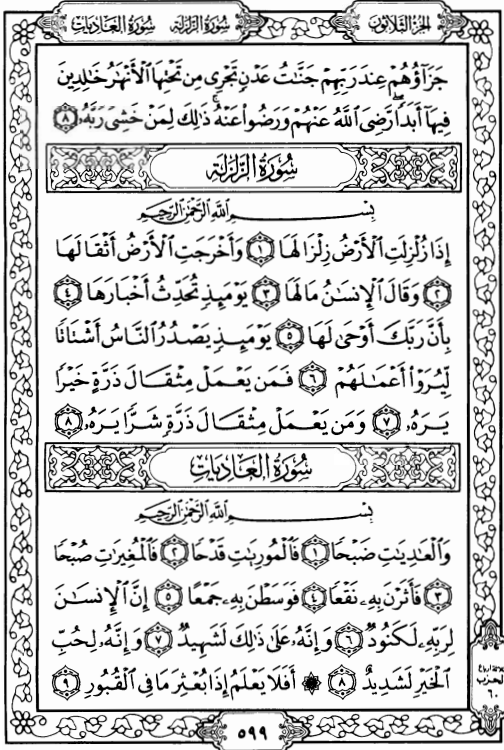 الجزء الثلاثون سورة الزلزلة سورة العاديات
جَزَآؤُهُمْ عِندَ رَبِّهِمْ جَنَّٰتُ عَدْنٍ تَجْرِى مِن تَحْتِهَا ٱلْأَنْهَٰرُ خَٰلِدِينَ
فِيهَآ أَبَدًا ۖ رَّضِىَ ٱللَّهُ عَنْهُمْ وَرَضُوا۟ عَنْهُ ۚ ذَٰلِكَ لِمَنْ خَشِىَ رَبَّهُۥ ٨
سُورَةُ الزَّلْزَلَة
بِسْمِ ٱللَّهِ ٱلرَّحْمَٰنِ ٱلرَّحِيمِ
إِذَا زُلْزِلَتِ ٱلْأَرْضُ زِلْزَالَهَا ١ وَأَخْرَجَتِ ٱلْأَرْضُ أَثْقَالَهَا
٢ وَقَالَ ٱلْإِنسَٰنُ مَا لَهَا ٣ يَوْمَئِذٍ تُحَدِّثُ أَخْبَارَهَا ٤
بِأَنَّ رَبَّكَ أَوْحَىٰ لَهَا ٥ يَوْمَئِذٍ يَصْدُرُ ٱلنَّاسُ أَشْتَاتًا
لِّيُرَوْا۟ أَعْمَٰلَهُمْ ٦ فَمَن يَعْمَلْ مِثْقَالَ ذَرَّةٍ خَيْرًا
يَرَهُۥ ٧ وَمَن يَعْمَلْ مِثْقَالَ ذَرَّةٍ شَرًّا يَرَهُۥ ٨
سُورَةُ العَادِيَات
بِسْمِ ٱللَّهِ ٱلرَّحْمَٰنِ ٱلرَّحِيمِ
وَٱلْعَٰدِيَٰتِ ضَبْحًا ١ فَٱلْمُورِيَٰتِ قَدْحًا ٢ فَٱلْمُغِيرَٰتِ صُبْحًا
٣ فَأَثَرْنَ بِهِۦ نَقْعًا ٤ فَوَسَطْنَ بِهِۦ جَمْعًا ٥ إِنَّ ٱلْإِنسَٰنَ
لِرَبِّهِۦ لَكَنُودٌ ٦ وَإِنَّهُۥ عَلَىٰ ذَٰلِكَ لَشَهِيدٌ ٧ وَإِنَّهُۥ لِحُبِّ
ٱلْخَيْرِ لَشَدِيدٌ ٨ ۞ أَفَلَا يَعْلَمُ إِذَا بُعْثِرَ مَا فِى ٱلْقُبُورِ ٩
الحزب
٦٠
٥٩٩